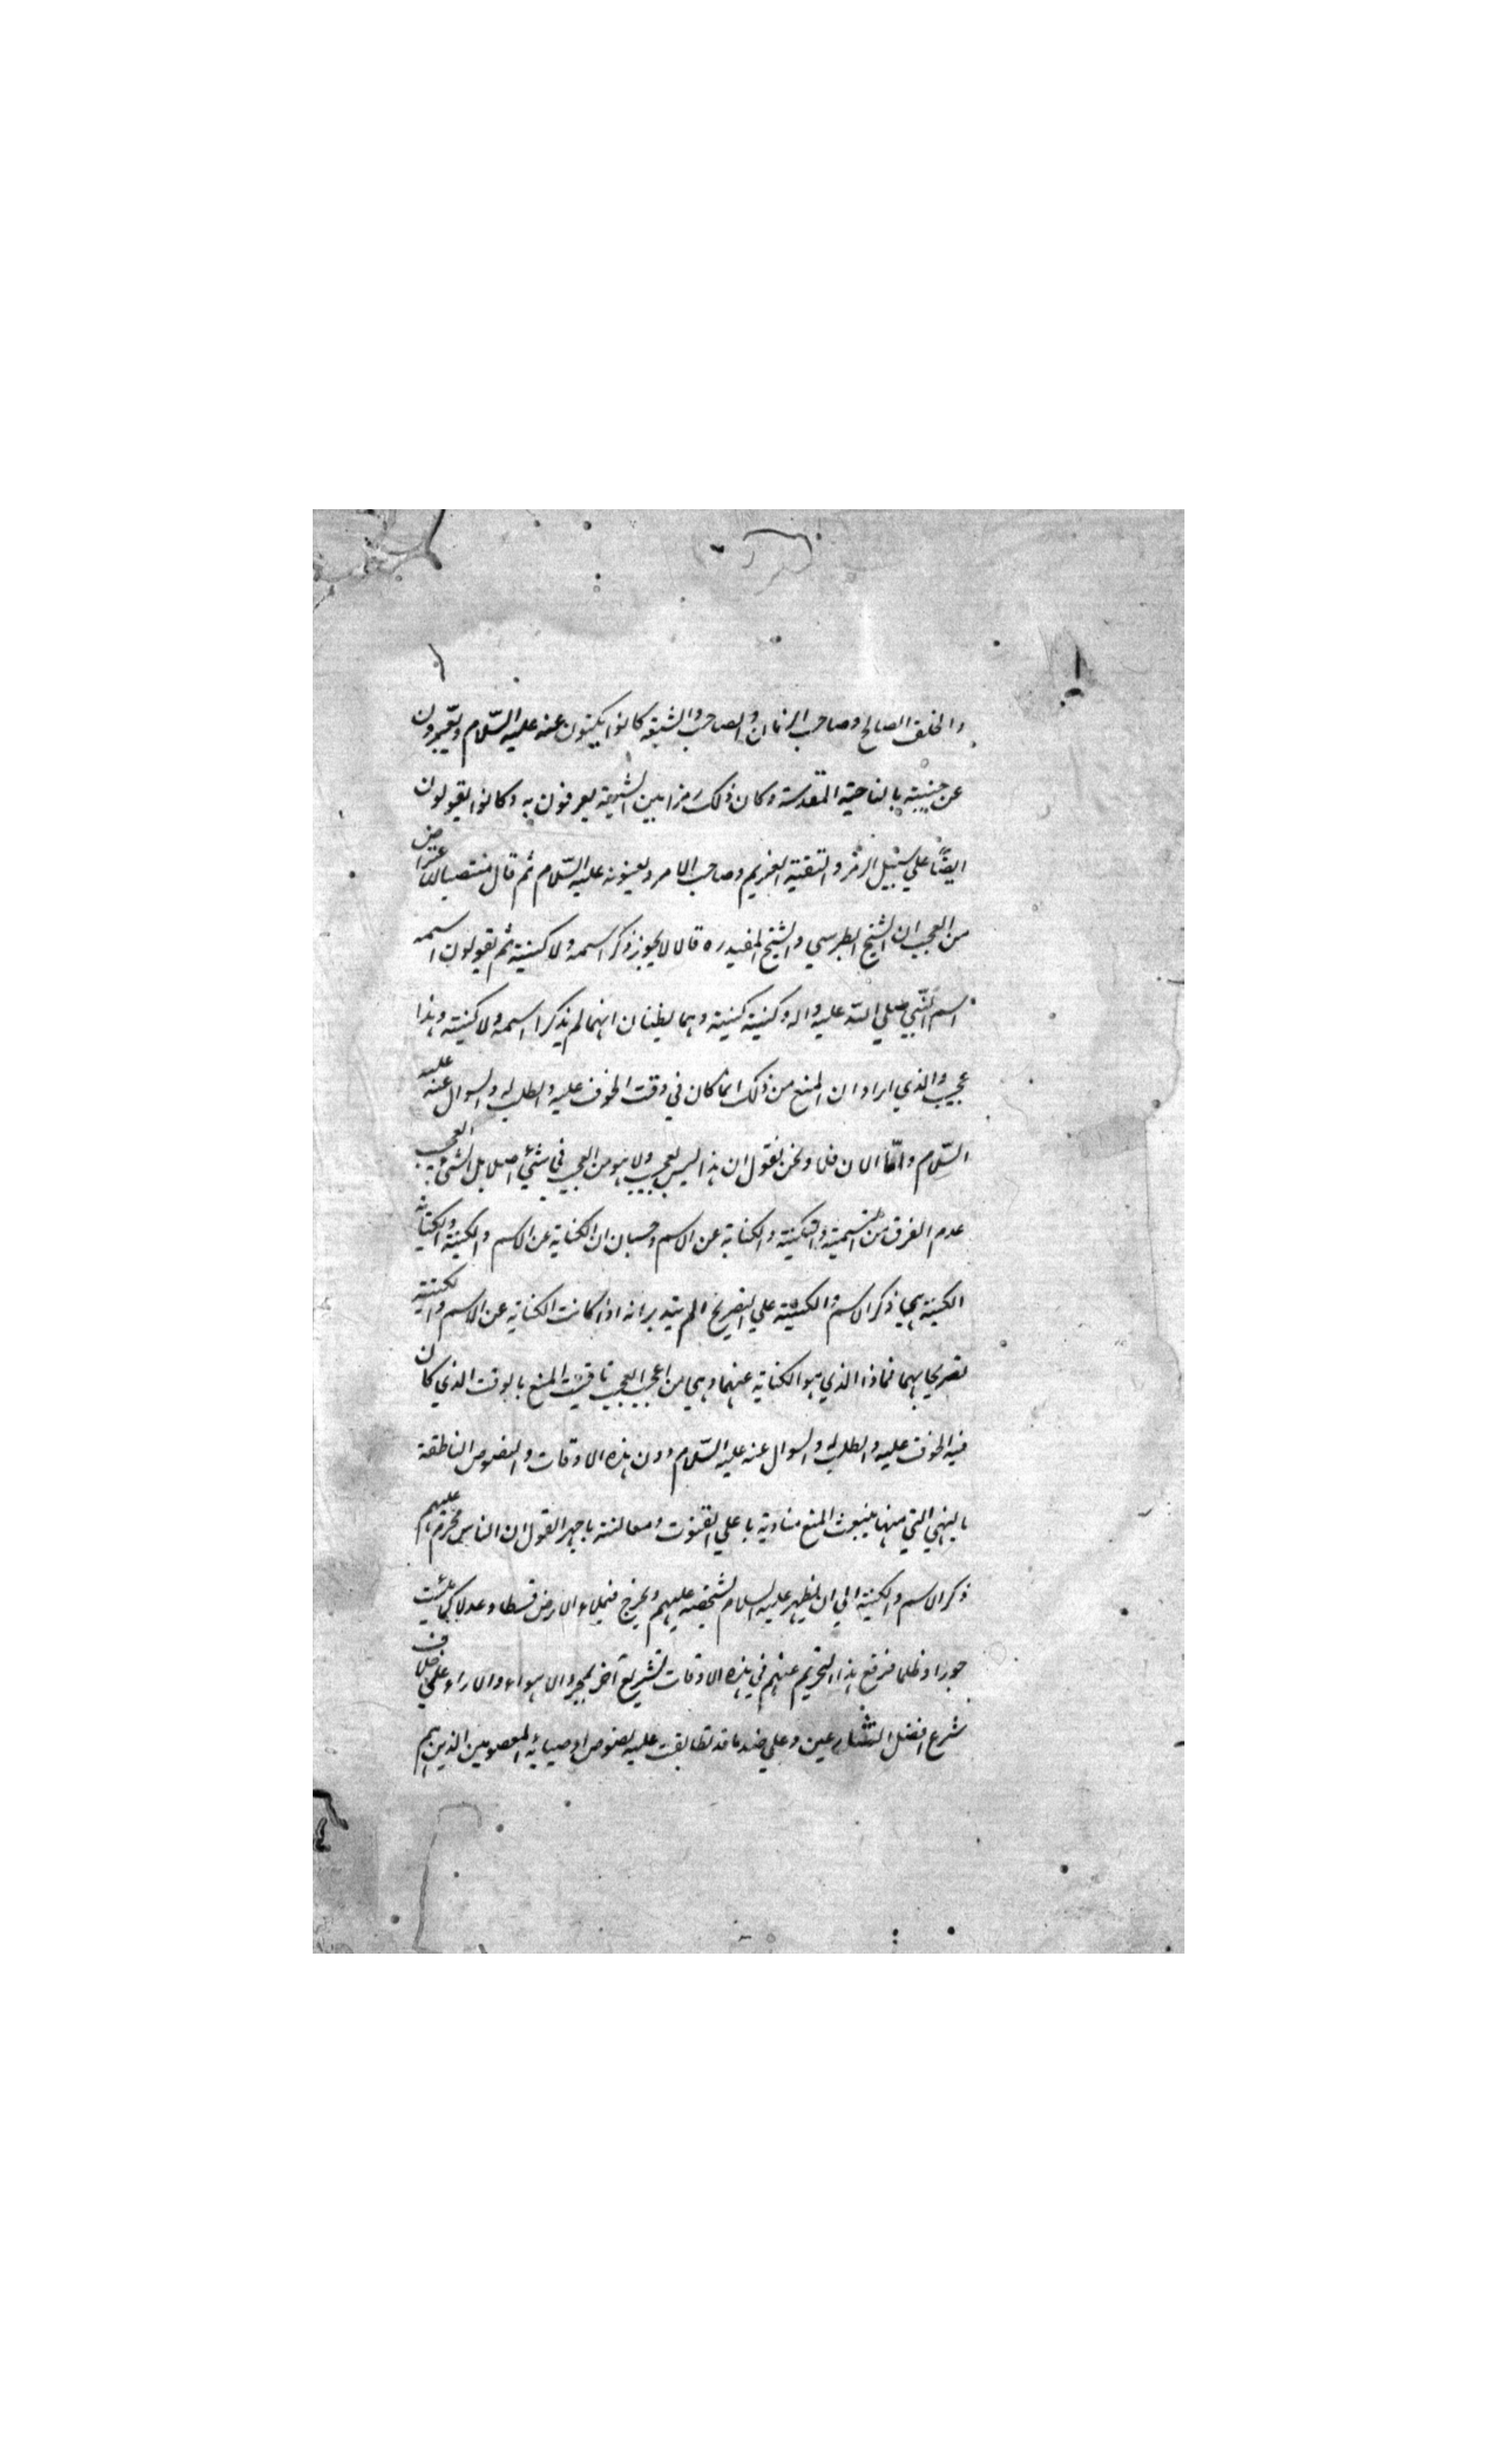 والخلف الصالح وصاحب الزمان والصاحب والشيعة كانوا يكنون عنه عليه السّلام ويعبّرون
عن جنبته بالناحية المقدسة وكان ذلك رمزا بين الشيعة يعرفون به وكانوا يقولون
ايضًا علي سبيل الرمز والتقية الغريم وصاحب الامر ويعنونه عليه السّلام ثم قال منتصبا للاعتراض
من العجب ان الشيخ الطبرسي والشيخ المفيد ره قالا لا يجوز ذكر اسمه ولا كنيته ثم يقولون اسمه
اسم النّبي صلي الله عليه واله وكنيته كنيته وهما يظنان انهما لم يذكرا اسمه ولا كنيته وهذا
عجيب والذي اراه ان المنع من ذلك انما كان في وقت الخوف عليه والطلب له والسوال عنه عليه
السّلام وامّا الان فلا ونحن نقول ان هذا ليس بعجيب ولا هو من العجب في شيئ اصلا بل الشيئ العجيب
عدم الفرق بين التسمية والتكنية والكناية عن الاسم وحسبان ان الكناية عن الاسم والكنية والكناية
الكنية هي ذكر الاسم والكنية علي التصريح الم يتدبر انه اذا كانت الكناية عن الاسم والكنية
تصريحا بهما فماذا الذي هو الكناية عنهما وهي من اعجب العجيب تاقيت المنع بالوقت الذي كان
فيه الخوف عليه والطلب له والسوال عنه عليه السّلام دون هذه الاوقات والنصوص الناطقة
بالنهي التي منها ينبعث المنع منادية باعلي الصوت ومعالنة باجهر القول ان الناس محرم عليهم
ذكر الاسم والكنية الي ان يظهر عليه السلام لشخصه عليهم ويخرج فيملاء الارض قسطا وعدلا كما ملئت
جورا وظلما فرفع هذا التحريم عنهم في هذه الاوقات تشريع آخر بمجرد الاهواء والاراء علي خلاف
شرع افضل الشارعين وعلي ضد ما قد تطابقت عليه نصوص اوصيائه المعصومين الذين هم